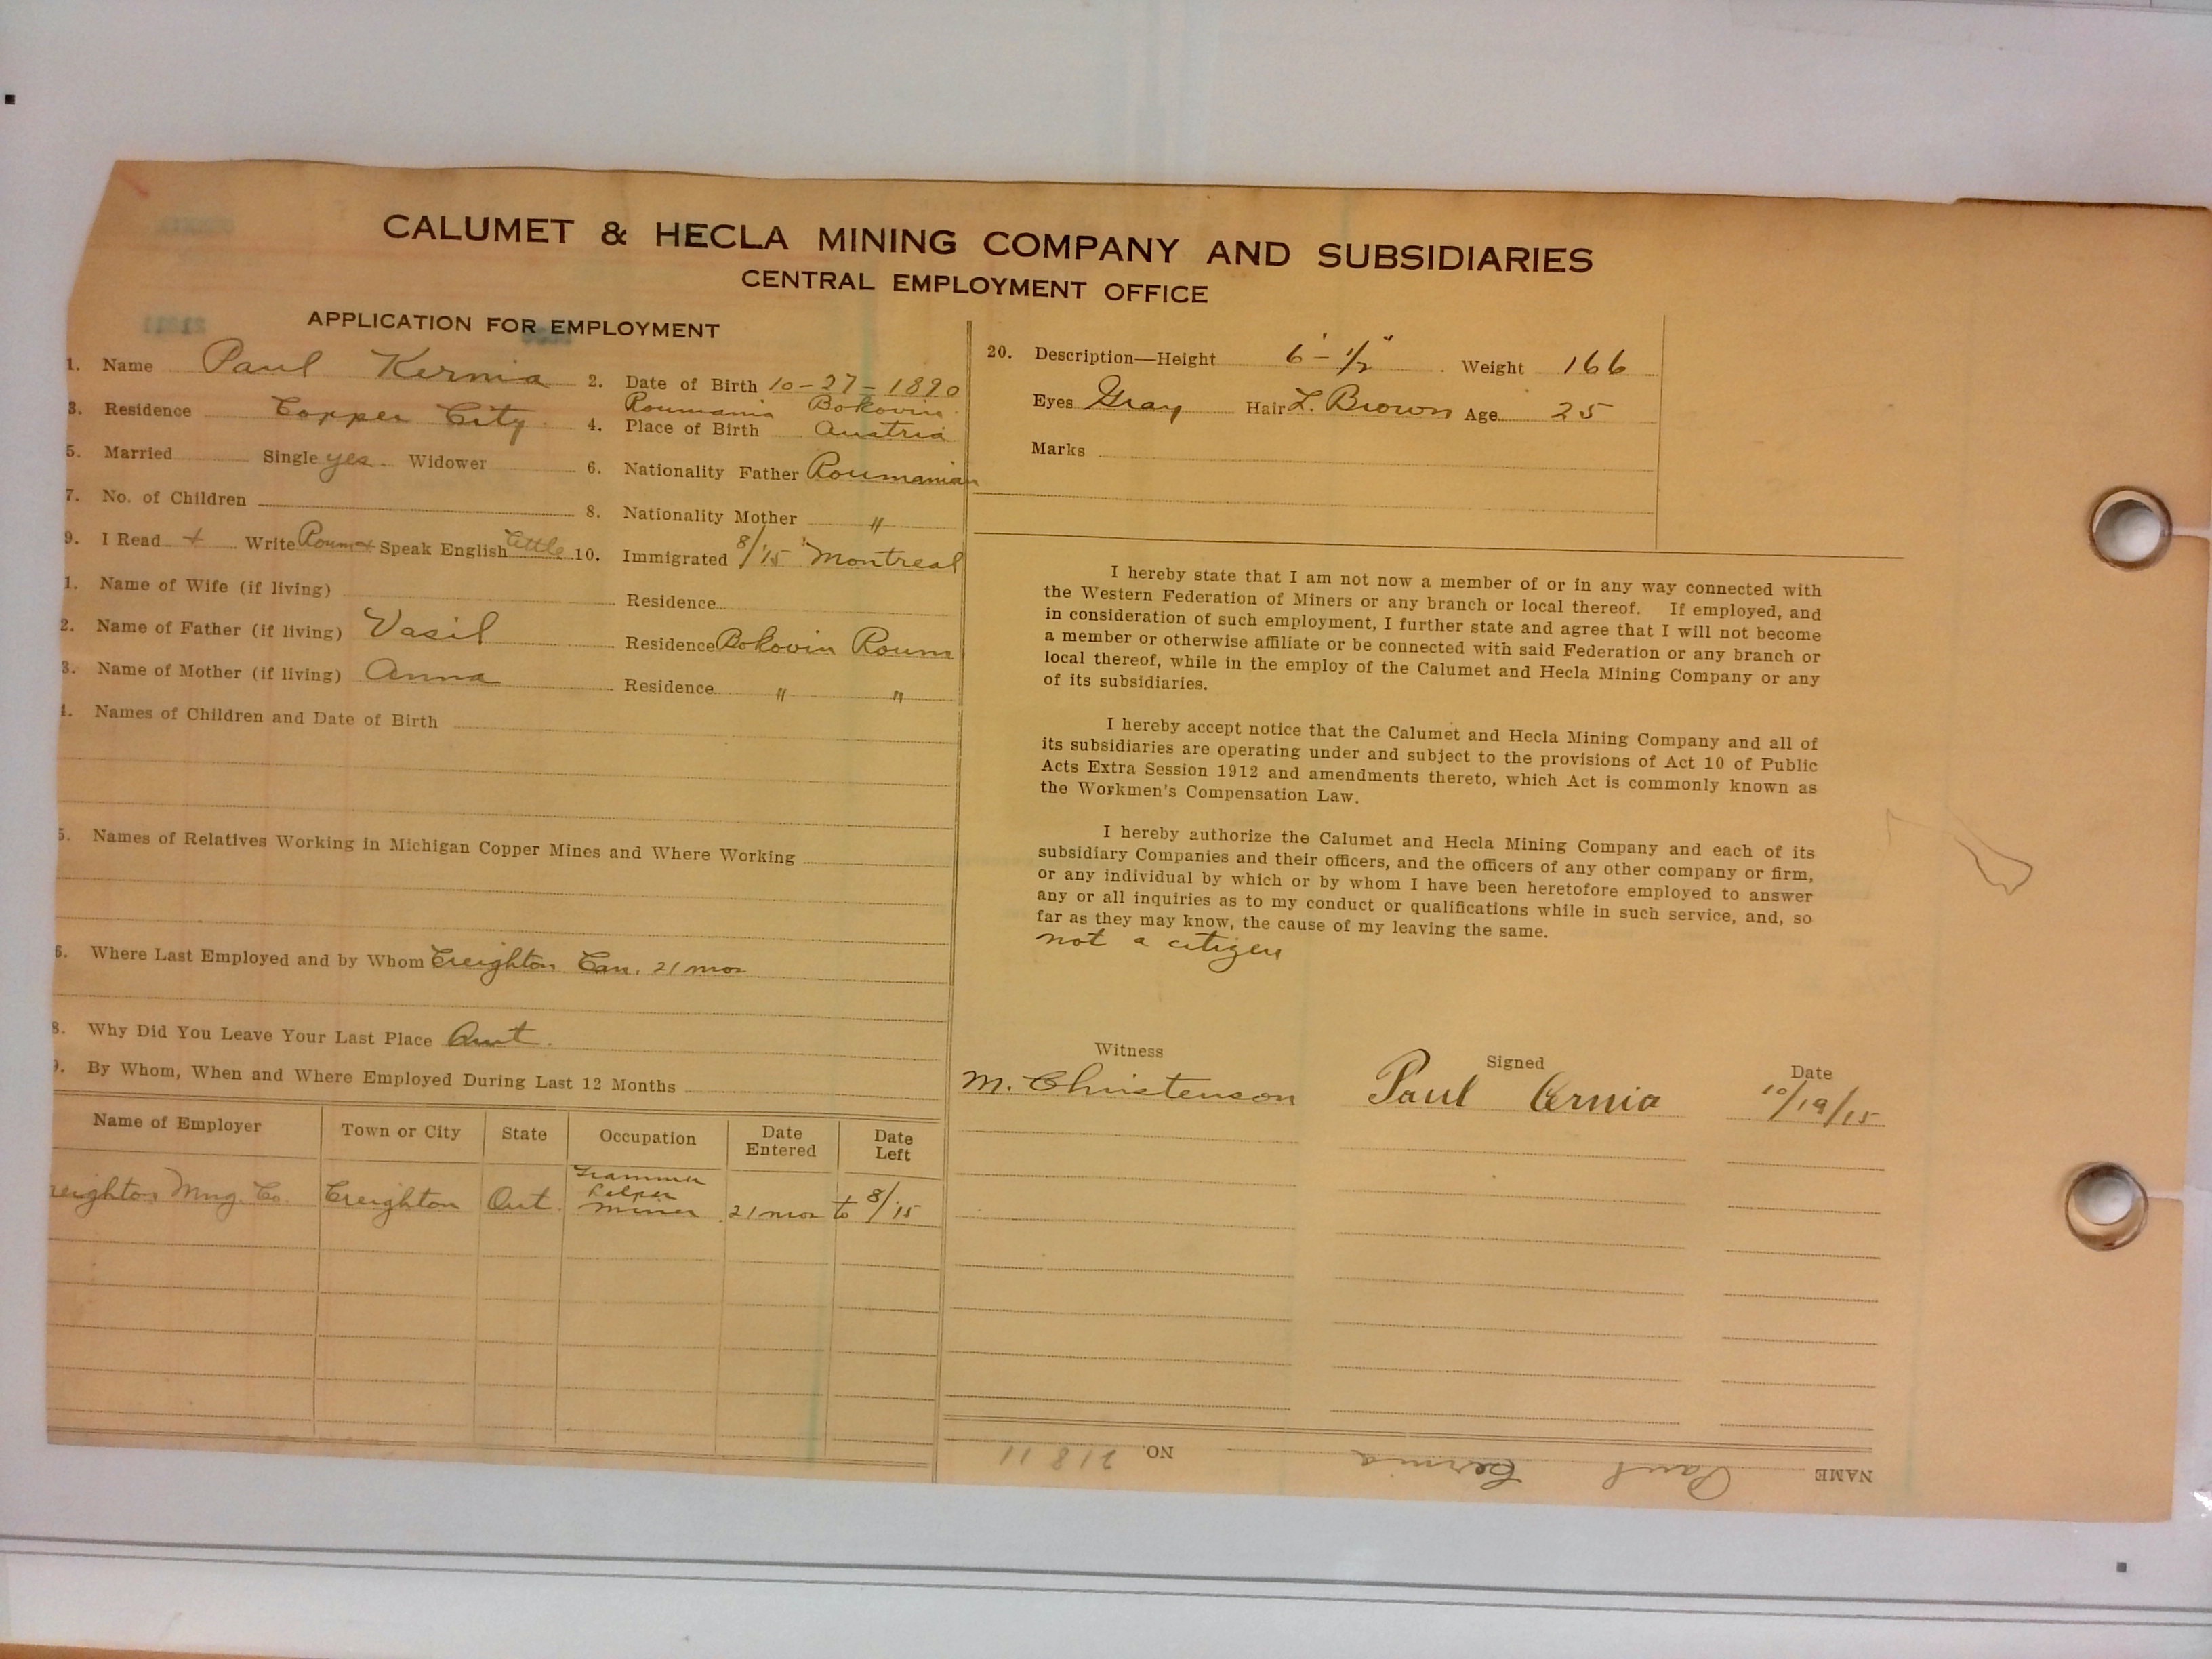 CALUMET & HECLA MINING COMPANY AND SUBSIDIARIES
CENTRAL EMPLOYMENT OFFICE
APPLICATION FOR EMPLOYMENT
1. Name Paul Kernia 2. Date of Birth 10-27-1890
Roumania Bokovin
3. Residence Copper City 4. Place of Birth Austria
5. Married Single yes Widower 6. Nationality Father Roumanian
7. No. of Children 8. Nationality Mother "
9. I Read + Write Roum + Speak English little 10. Immigrated 8/15 Montreal
1. Name of Wife (if living) Residence
2. Name of Father (if living) Vasil Residence Bokovin Roum
3. Name of Mother (if living) Anna Residence " "
4. Names of Children and Date of Birth
5. Names of Relatives Working in Michigan Copper Mines and Where Working
6. Where Last Employed and by Whom Creighton Can. 21 mos
8. Why Did You Leave Your Last Place Quit.
9. By Whom, When and Where Employed During Last 12 Months
Name of Employer Town or City State Occupation Date Entered Date Left
reighton Mng. Co. Creighton Ont. Trammer Helper Miner 21 mos to 8/15
20. Description—Height 6' - 1/2" Weight 166
Eyes Gray Hair L. Brown Age 25
Marks
I hereby state that I am not now a member of or in any way connected with
the Western Federation of Miners or any branch or local thereof. If employed, and
in consideration of such employment, I further state and agree that I will not become
a member or otherwise affiliate or be connected with said Federation or any branch or
local thereof, while in the employ of the Calumet and Hecla Mining Company or any
of its subsidiaries.
I hereby accept notice that the Calumet and Hecla Mining Company and all of
its subsidiaries are operating under and subject to the provisions of Act 10 of Public
Acts Extra Session 1912 and amendments thereto, which Act is commonly known as
the Workmen's Compensation Law.
I hereby authorize the Calumet and Hecla Mining Company and each of its
subsidiary Companies and their officers, and the officers of any other company or firm,
or any individual by which or by whom I have been heretofore employed to answer
any or all inquiries as to my conduct or qualifications while in such service, and, so
far as they may know, the cause of my leaving the same.
not a citizen
Witness Signed Date
M. Christenson Paul Cernia 10/19/15
NAME Paul Cernia NO. 21811